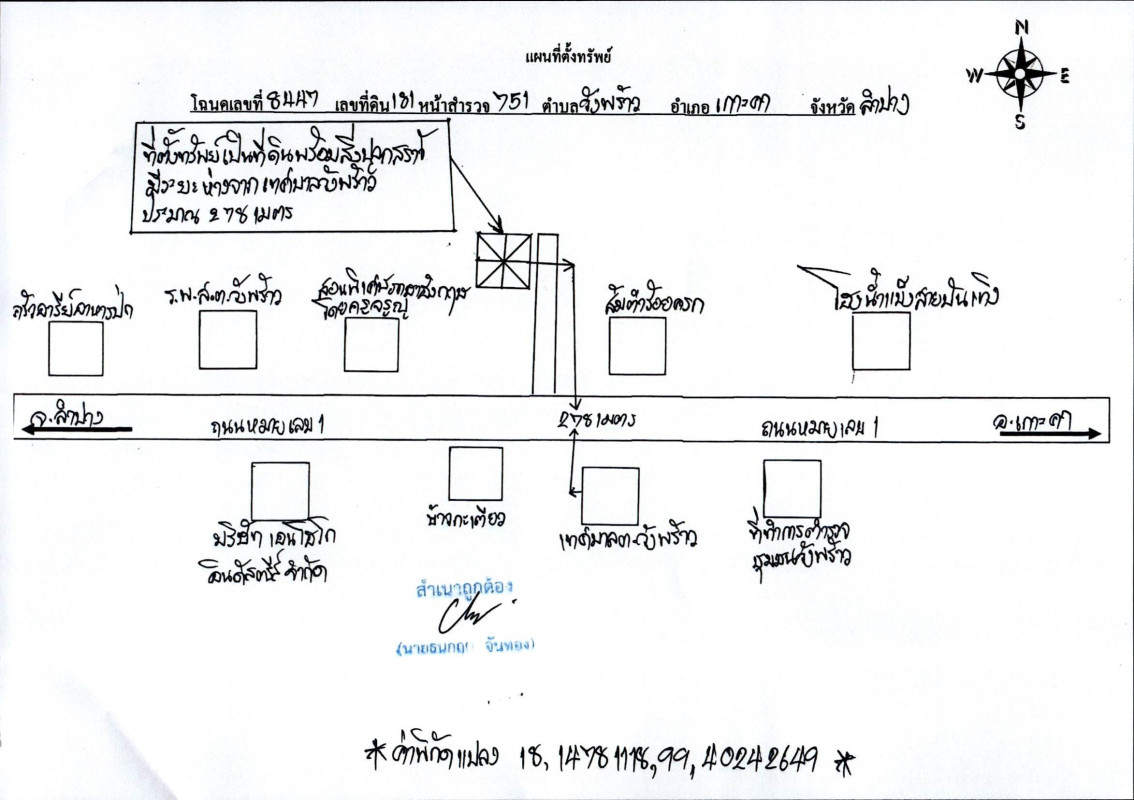 N
แผนที่ตั้งทรัพย์
W E
S
โฉนดเลขที่ 8447 เลขที่ดิน 181 หน้าสำรวจ 751 ตำบล วังพร้าว อำเภอ เกาะคา จังหวัด ลำปาง
ที่ตั้งทรัพย์เป็นที่ดินพร้อมสิ่งปลูกสร้าง
มีระยะห่างจากเทศบาลวังพร้าว
ประมาณ 278 เมตร
ครัวอารีย์อาหารป่า
ร.พ.ส.ต.วังพร้าว
สอนพิเศษภาษาอังกฤษ
โดยครูจรูญ
ส้มตำร้อยครก
โรงน้ำแข็งสายปันเทิง
จ.ลำปาง
ถนนหมายเลข 1
278 เมตร
ถนนหมายเลข 1
อ.เกาะคา
บริษัท เอนไซโก
อินดัสตรี จำกัด
ข้าวกะเตียว
เทศบาลต.วังพร้าว
ที่ทำการตำรวจ
ชุมชนวังพร้าว
สำเนาถูกต้อง
(นายธนกฤ จันทอง)
*ค่าพิกัดแปลง 18,1478118,99,40242649 *